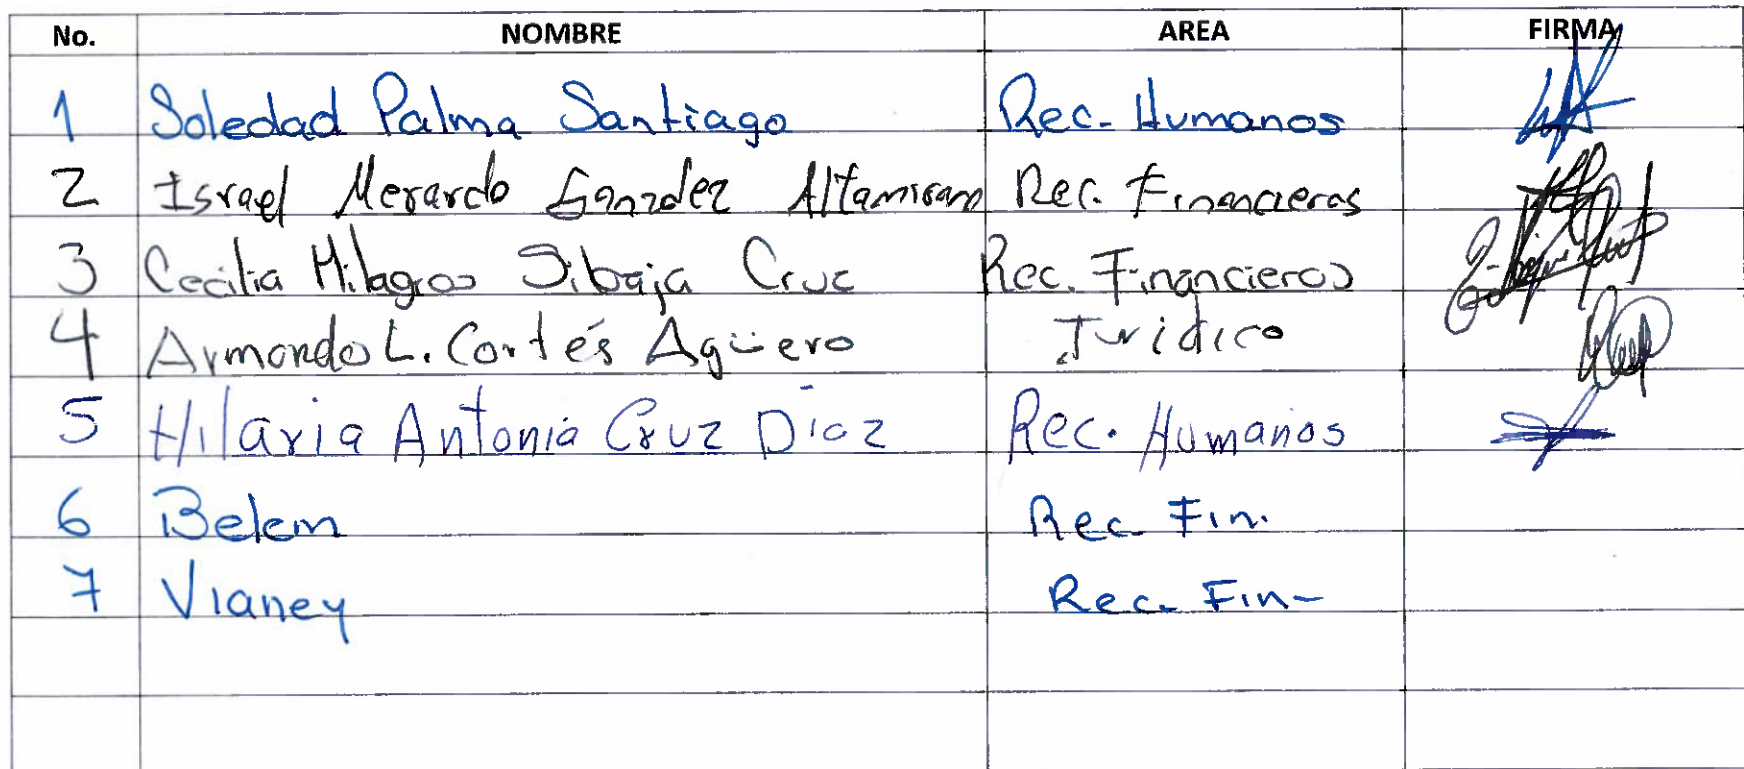 No. NOMBRE AREA FIRMA
1 Soledad Palma Santiago Rec. Humanos
2 Israel Merardo González Altamirano Rec. Financieros
3 Cecilia Milagros Sibaja Cruz Rec. Financieros
4 Armando L. Cortés Agüero Jurídico
5 Hilaria Antonia Cruz Díaz Rec. Humanos
6 Belem Rec. Fin.
7 Vianey Rec. Fin-